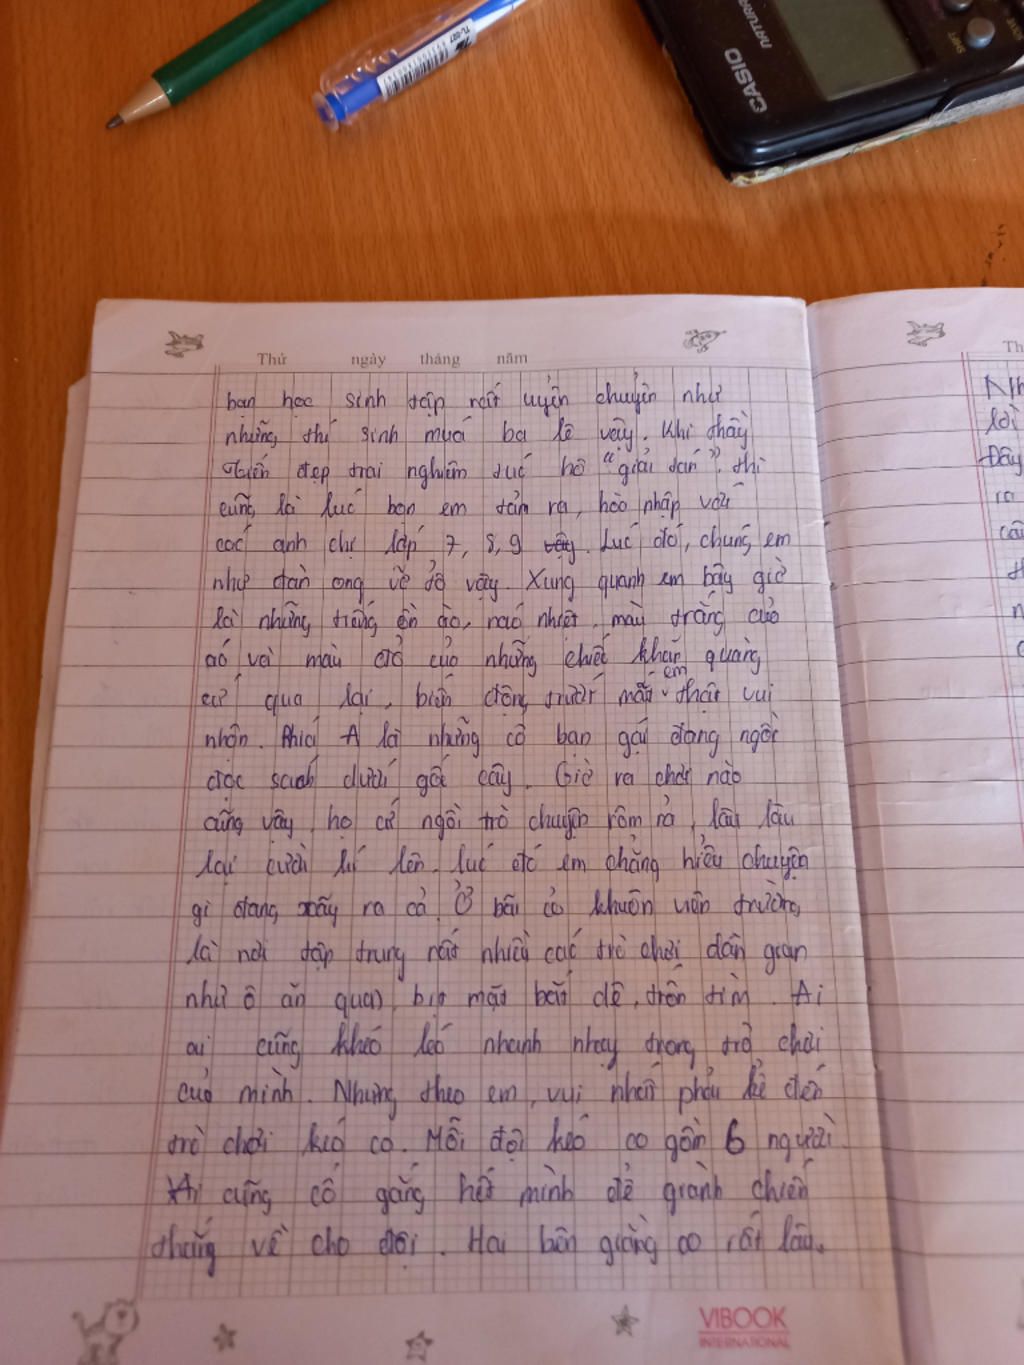 TL-027
CASIO
NATURA
SHIFT
MODE
Thứ ngày tháng năm
bạn học sinh tập rất uyển chuyển như
những thí sinh múa ba lê vậy. Khi thầy
đẹp trai nghiêm túc hô "giải tán". thì
cũng là lúc bọn em tản ra, hòa nhập với
các anh chị lớp 7, 8, 9 vậy. Lúc đó, chúng em
như đàn ong vỡ tổ vậy. Xung quanh em bây giờ
là những tiếng ồn ào, náo nhiệt, màu trắng của
áo với màu đỏ của những chiếc khăn quàng
cứ qua lại, biến động trước mắt em thật vui
nhộn. Phía A là những cô bạn gái đang ngồi
đọc sách dưới gốc cây. Giờ ra chơi nào
cũng vậy, họ cứ ngồi trò chuyện rôm rả, lâu lâu
lại cười lên. lúc đó em chẳng hiểu chuyện
gì đang xảy ra cả. Ở bãi cỏ khuôn viên trường,
là nơi tập trung rất nhiều các trò chơi dân gian
như ô ăn quan, bịt mắt bắt dê, trốn tìm. Ai
ai cũng khéo léo nhanh nhạy trong trò chơi
của mình. Nhưng theo em, vui nhất phải kể đến
trò chơi kéo co. Mỗi đội kéo co gồm 6 người.
Ai cũng cố gắng hết mình để giành chiến
thắng về cho đội. Hai bên giằng co rất lâu,
VIBOOK
INTERNATIONAL
Th
Nh
lời
Đây
ra